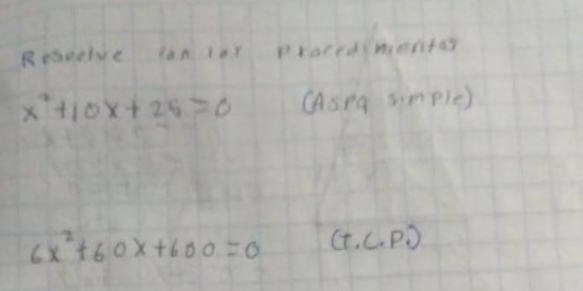 Resuelve con los procedimientos
x²+10x+25=0 (Aspa simple)
6x²+60x+600=0 (T.C.P.)